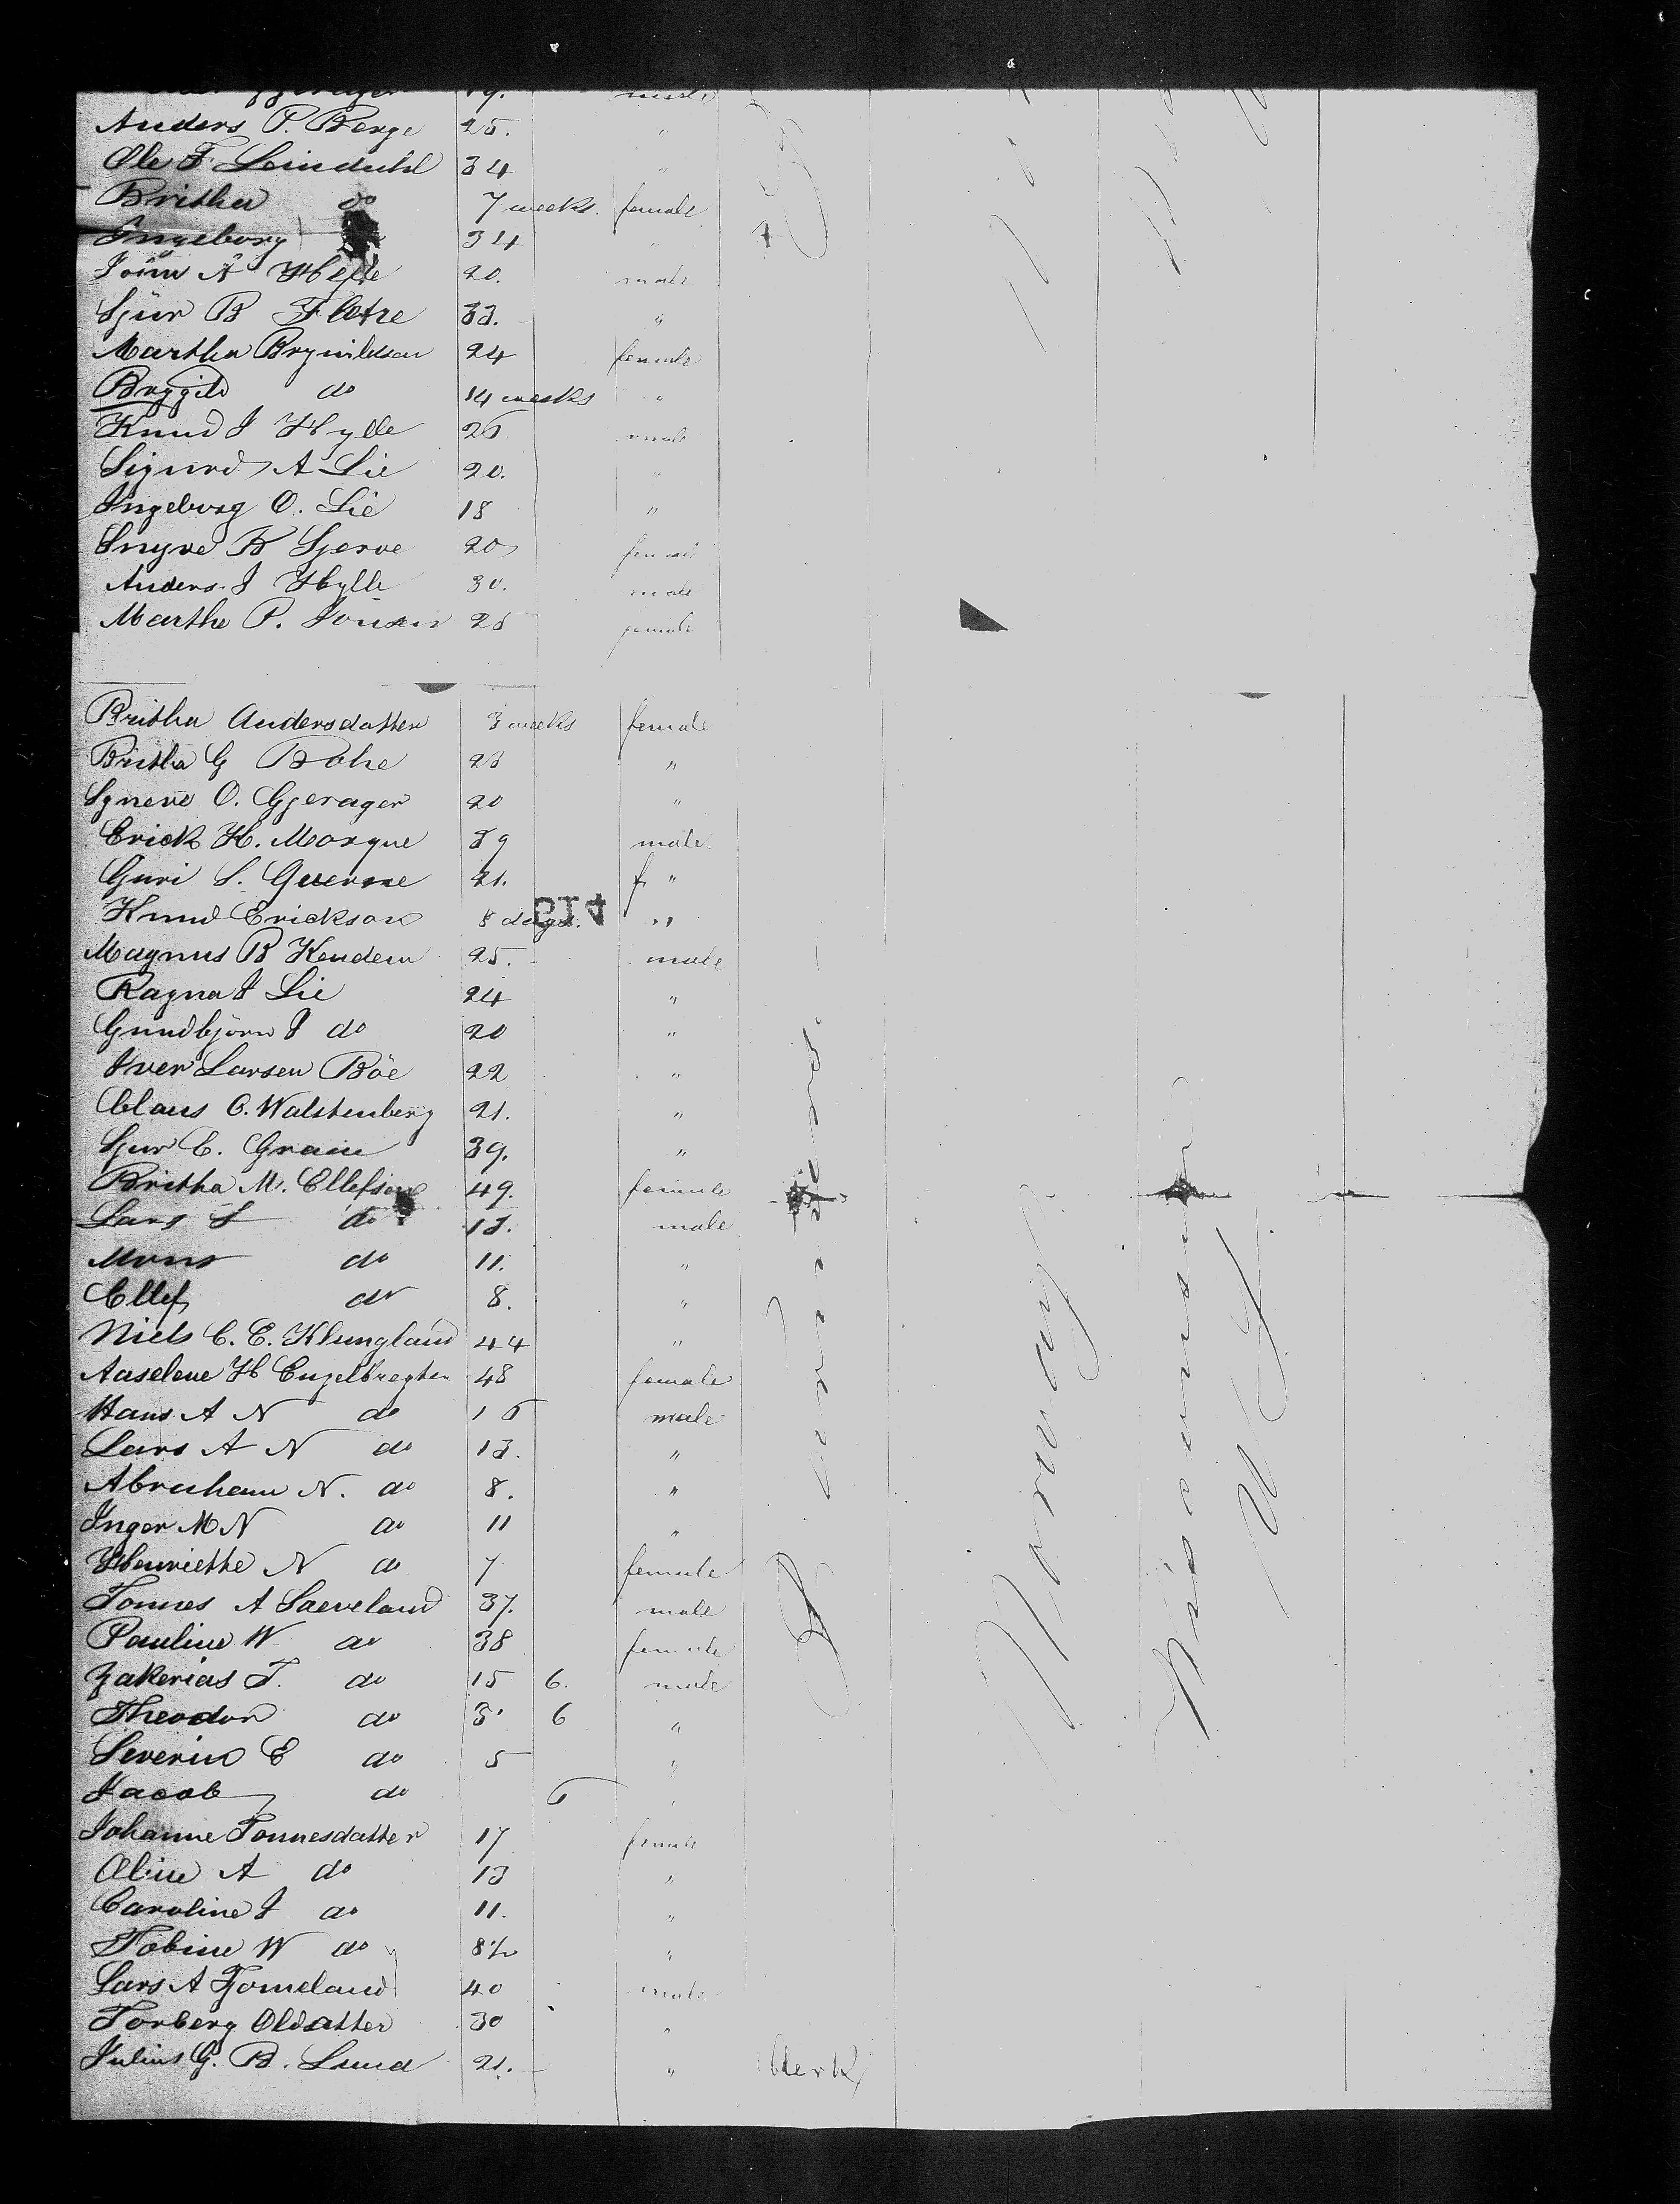 19. male
Anders P. Berge 25. "
Ole F Leindahl 34 "
Britha do 7 weeks. female
Ingeborg 34 "
John A Hylle 20. male
Sjur B Fletre 33. "
Martha Brynildson 24 female
Bryggild do 14 weeks "
Knud J Hylle 26 male
Sigurd A Lie 20. "
Ingeborg O. Lie 18 "
Synve B Sjerve 20 female
Anders J Hylle 30. male
Marthe P. Jonsen 25 female
Britha Andersdatter 3 weeks female
Britha G Bohe 23 "
Syneve O. Gjerager 20 "
Erick K. Morque 39 male
Guri S. Querne 21. f "
Knud Erickson 8 days. "
514
Magnus B Kendem 25. male
Ragna J Lie 24 "
Gundbjörn J do 20 "
Iver Larsen Böe 22 "
Claus O. Walstenberg 21. "
Sjur C. Graue 39. "
Britha M. Ellefsone 49. female
Lars S do 13. male
Mons do 11. "
Ellef do 8. "
Niels C. E. Klungland 44 "
Aaselene H Engelbregten 48 female
Hans A N do 16 male
Lars A N do 13. "
Abraham N. do 8. "
Inger M N do 11 "
Henriethe N do 7 female
Tonnes A Saeveland 37. male
Pauline W do 38 female
Zakerias T. do 15 6. male
Theodor do 3. 6 "
Severin E do 5 "
Jacob do 6 "
Johanne Tonnesdatter 17 female
Oline A do 13 "
Caroline J do 11. "
Tobine W do 8 1/2 "
Lars A Tjomeland 40 male
Torberg Oldsatter 30 "
Julius G. B. Lund 21. " Clerk
Norway
Wisconsin